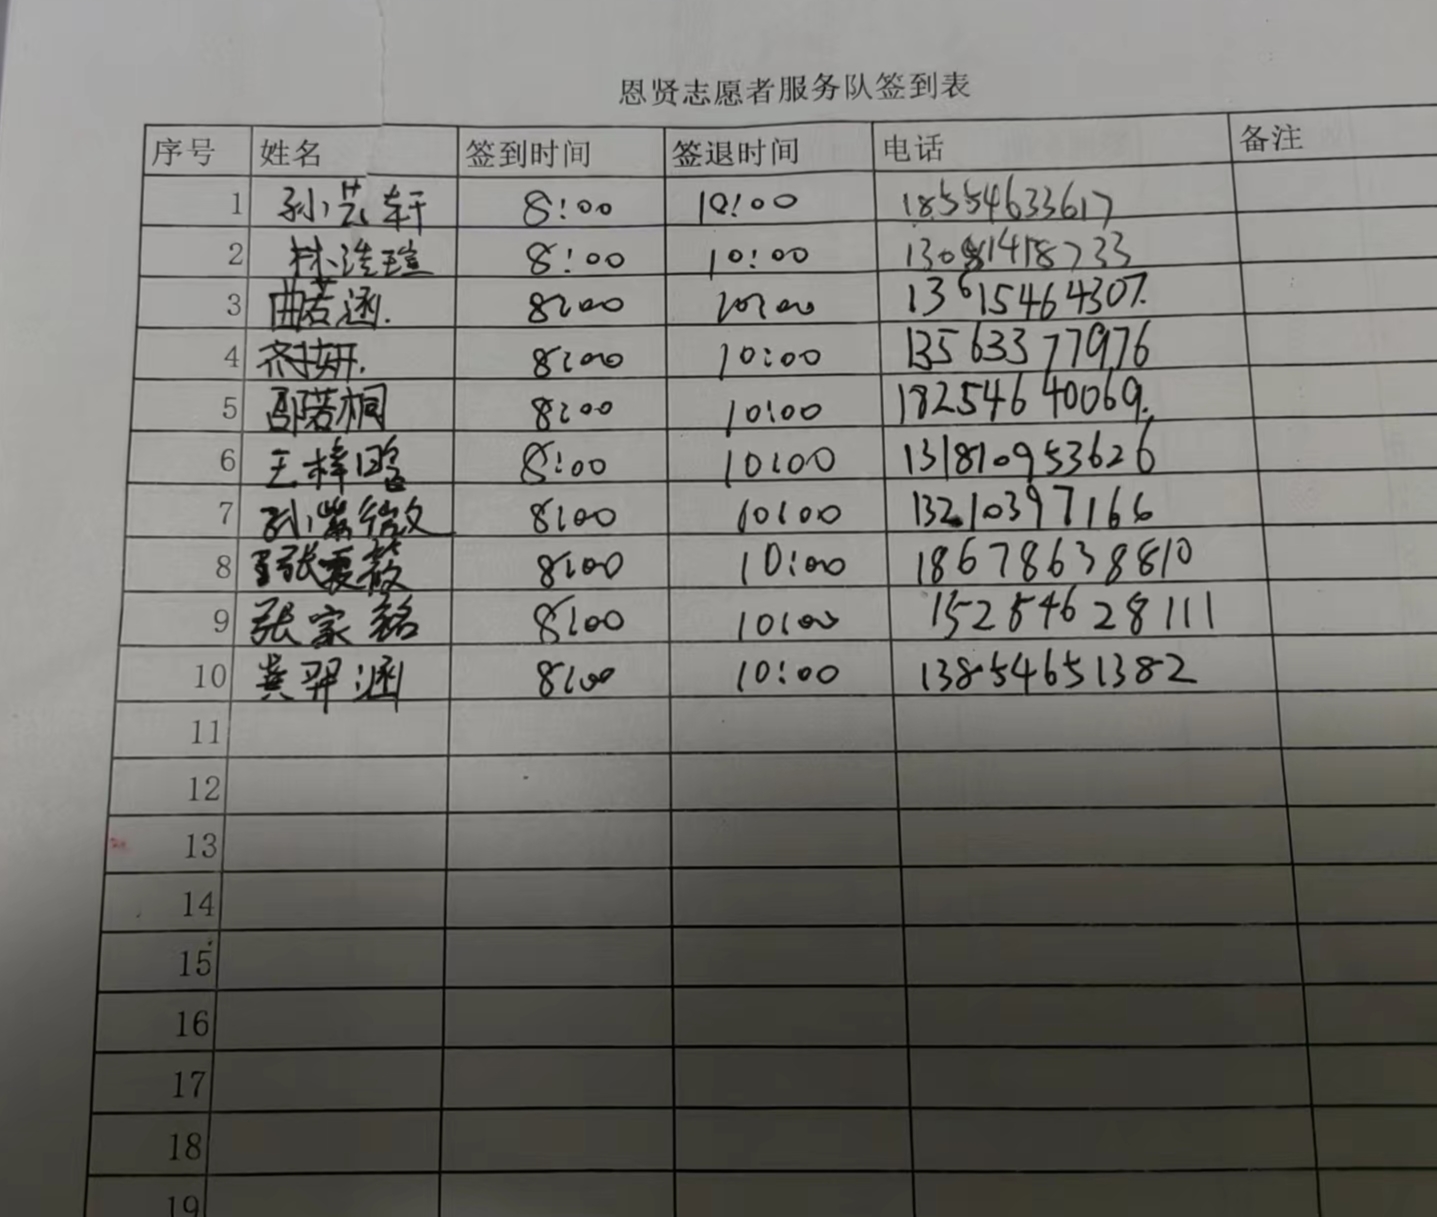 恩贤志愿者服务队签到表
序号 姓名 签到时间 签退时间 电话 备注
1 孙艺轩 8:00 10:00 18554633617
2 林浩瑄 8:00 10:00 13081418733
3 曲若涵. 8:00 10:00 13615464307.
4 齐妍. 8:00 10:00 13563377976
5 邵若桐 8:00 10:00 18254640069.
6 王梓 8:00 10:00 131810953626
7 孙紫微 8:00 10:00 13210397166
8 张夏薇 8:00 10:00 18678638810
9 张家铭 8:00 10:00 15254628111
10 龚羿涵 8:00 10:00 13854651382
11
12
13
14
15
16
17
18
19